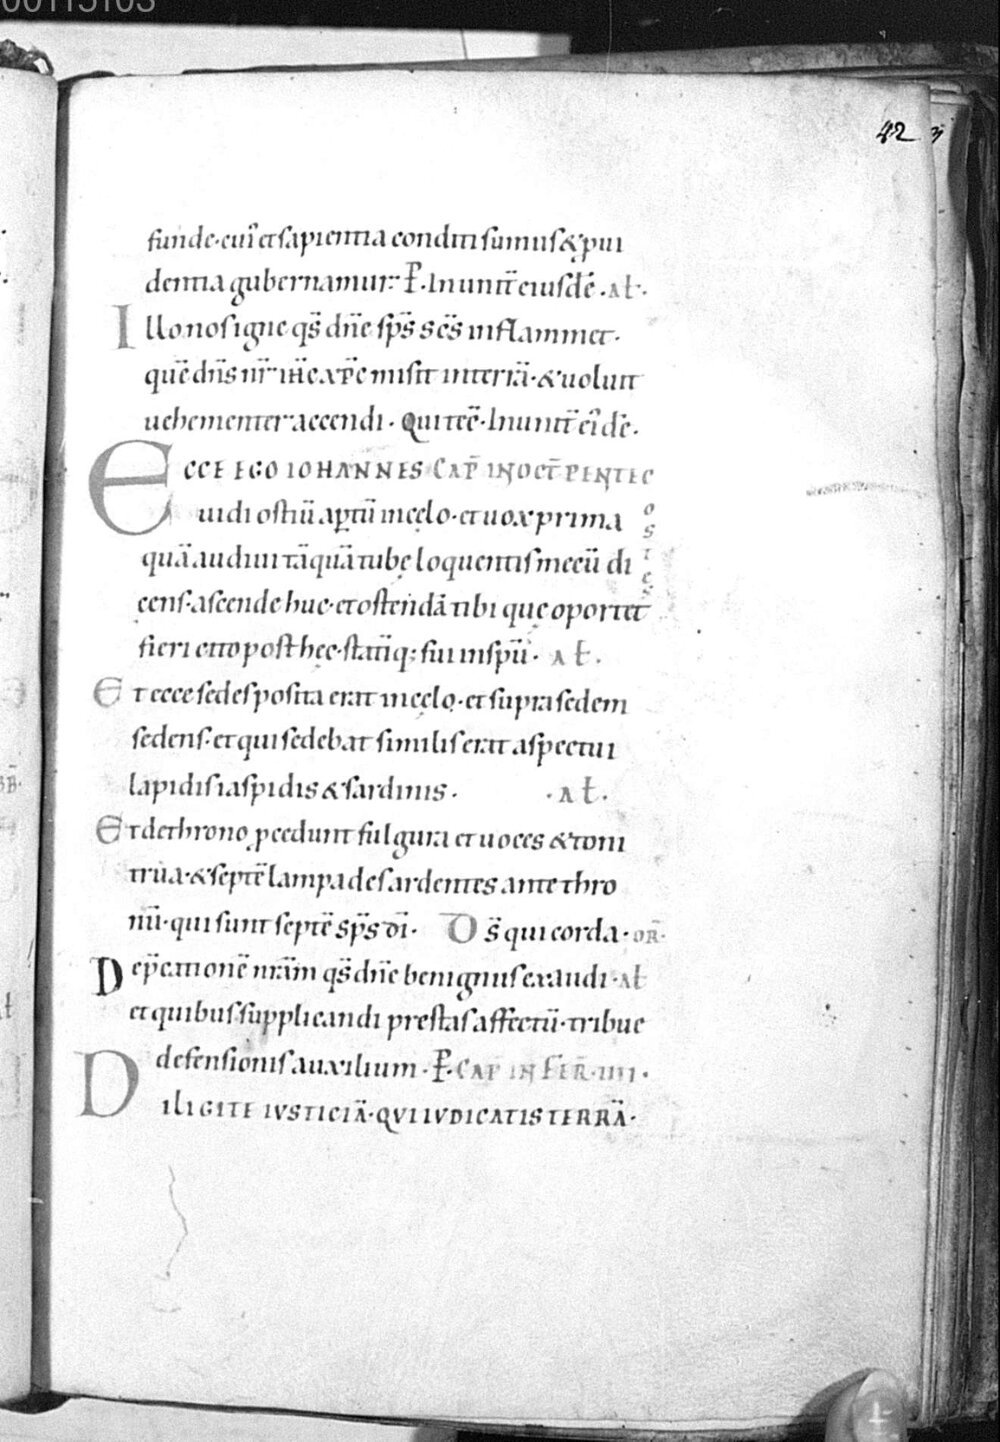 00115103
42
funde·cuiˀ et sapientia conditi sumus & ꝓui
dentia gubernamur· P̄· In unit̄ eiusdē· al̄·
Illo nos igne qs̄ dn̄e sp̄s sc̄s inflammet·
quē dn̄s nr̄ ih̄c xp̄c misit interrā· & uoluit
uehementer accendi· Qui tec̄· In unit̄ eiˀdē·
ECCE EGO IOHANNES CAP̄ IN OCT̄ PENTEC
uidi ostiū aꝑtū in cęlo· et uox prima
OSTES
quā audiui tāquā tubę loquentis mecū di
cens· ascende huc· et ostendā tibi quę oportet
fieri cito post hęc· statīq; fui in sp̄u· al̄·
Et ecce sedes posita erat in cęlo· et supra sedem
sedens· et qui sedebat similis erat aspectui
lapidis iaspidis & sardinis· ·al̄·
Et de throno ꝓcedunt fulgura et uoces & toni
trua· & septē lampades ardentes ante thro
nū· qui sunt septē sp̄s dī· Ds̄ qui corda· OR̄·
Dep̄cationē nr̄am qs̄ dn̄e benignus exaudi· al̄
et quibus supplicandi prestas affectū· tribue
defensionis auxilium· P̄· CAP̄ IN FER̄· IIII·
DILIGITE IVSTICIĀ· QVI IVDICATIS TERRĀ·